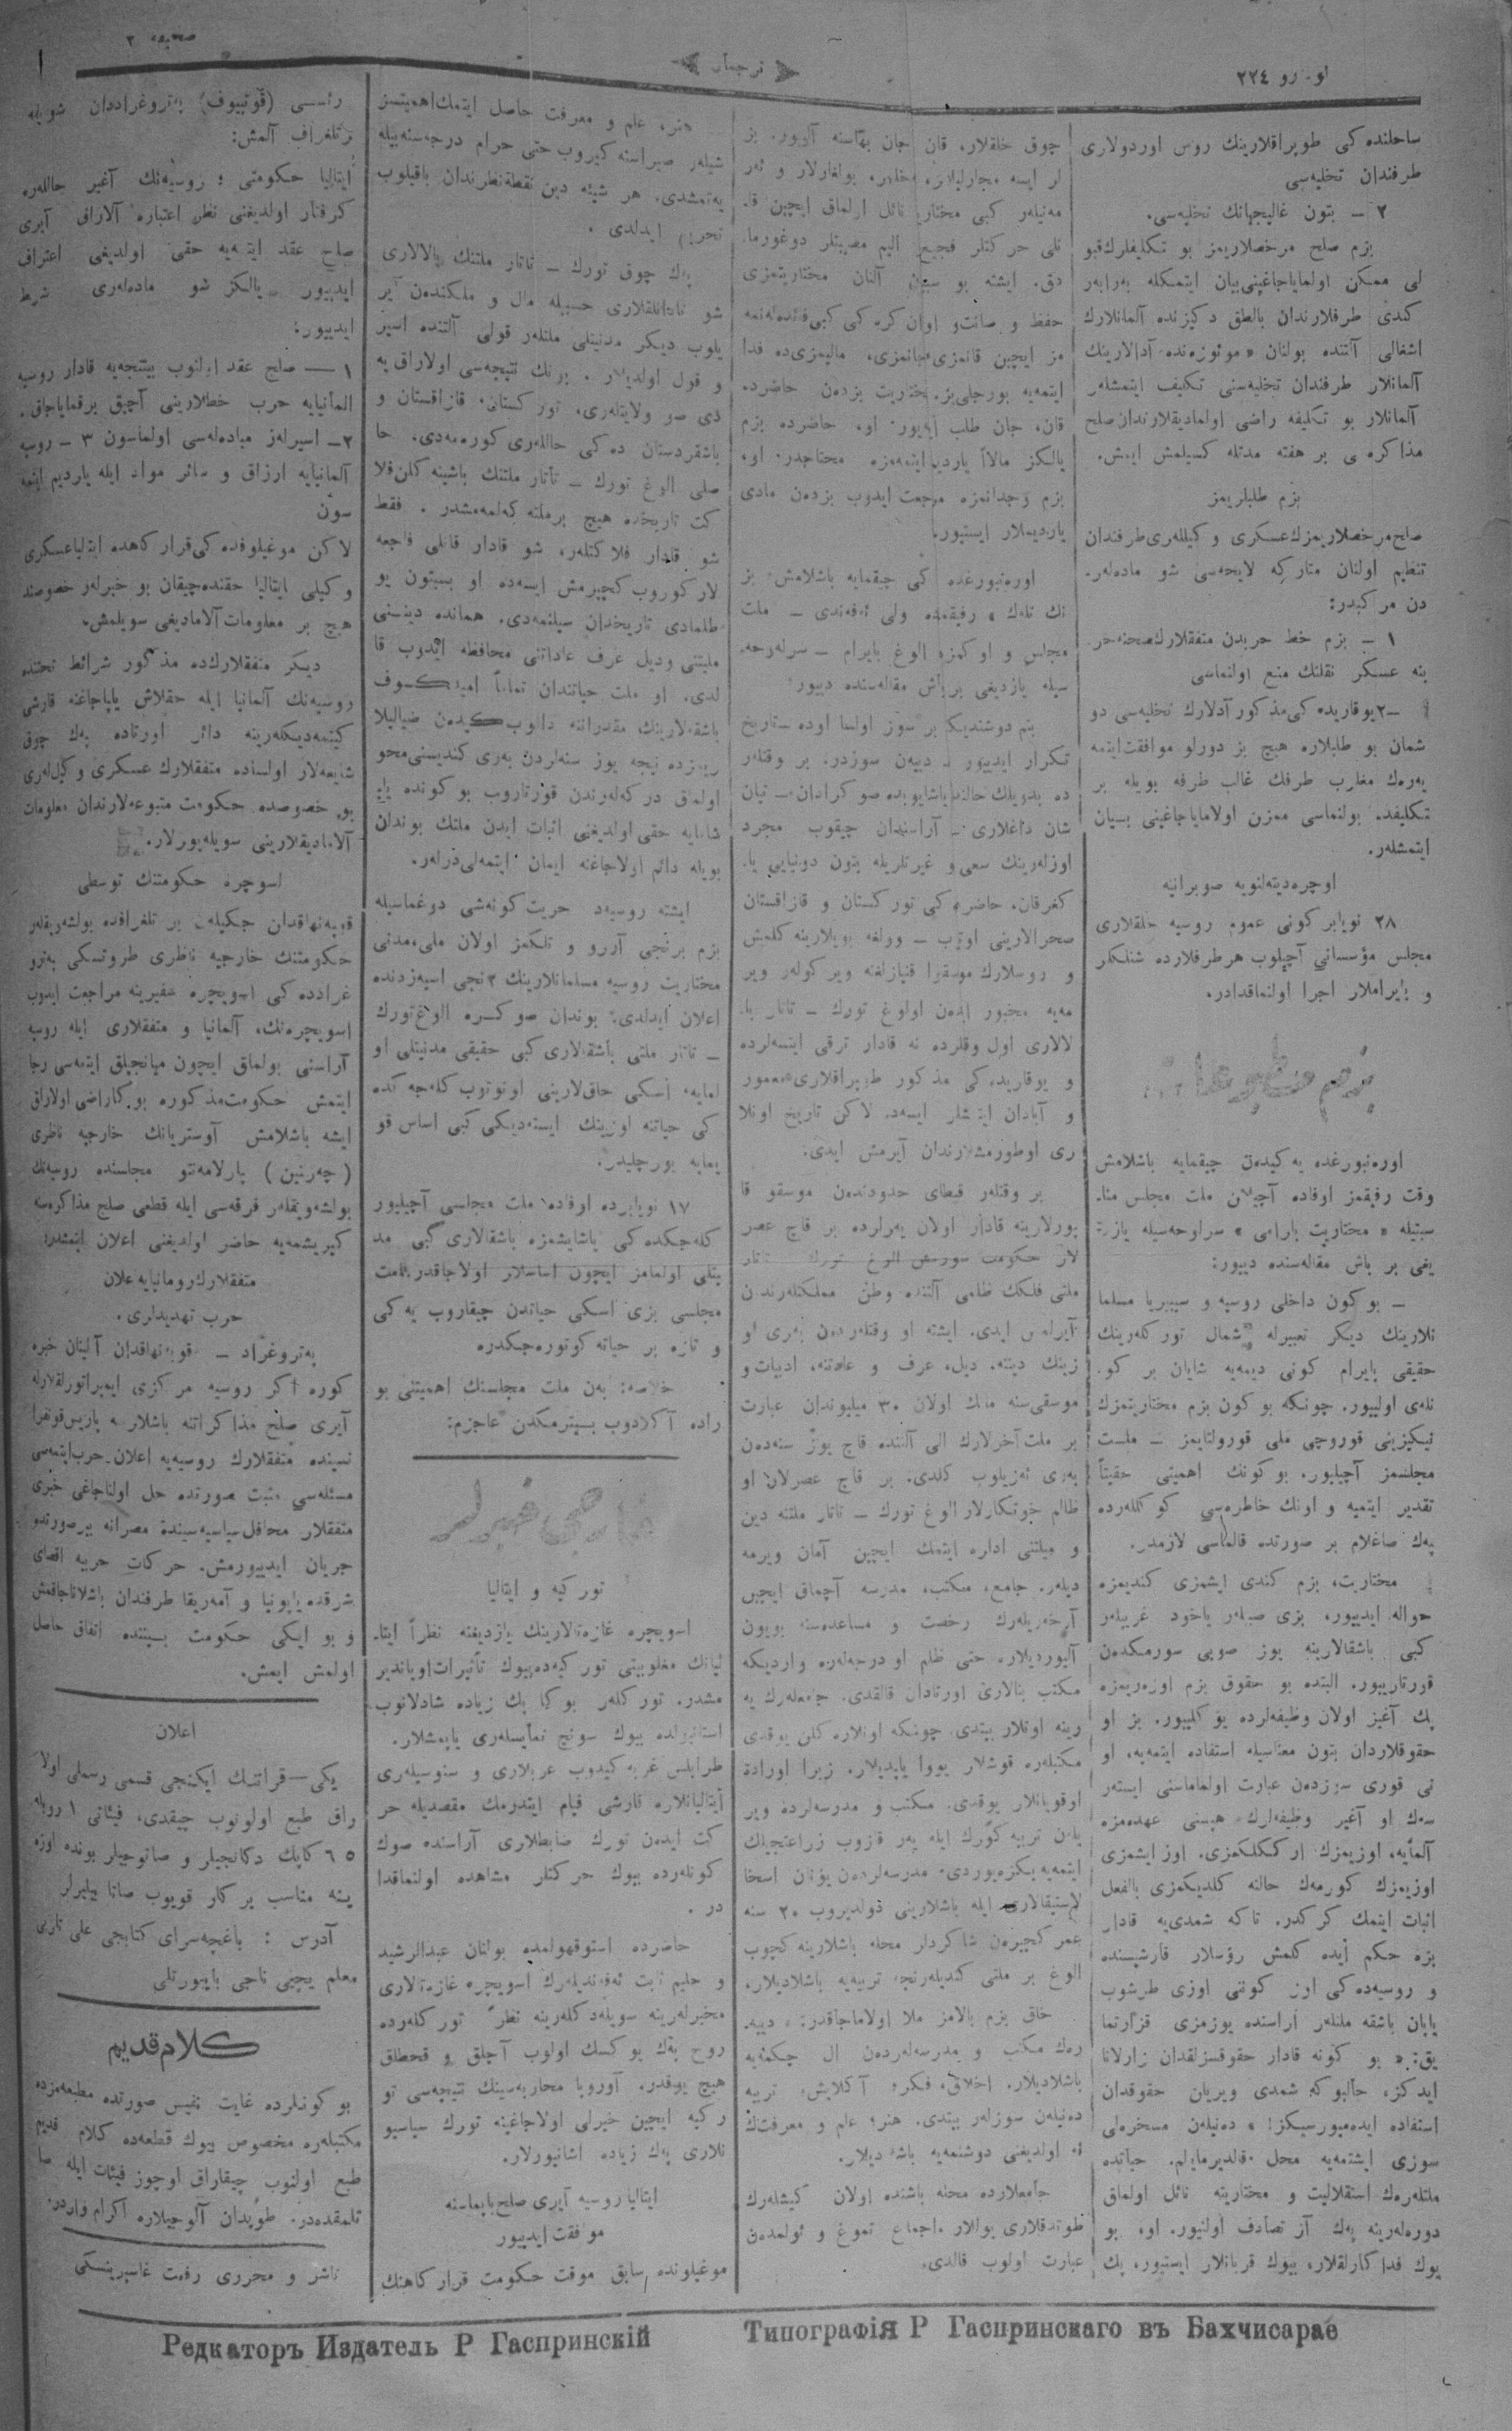 نومرو ٢٢٤
ترجمان
صحیفه ٢
ساحلنده کی طوپراقلارینك روس اوردولاری
طرفندان تخلیه‌سی
٢ – بتون غالیچیانك تخلیه‌سی.
بزم صلح مرخصلاریمز بو تکلیفلرك قبو
لی ممکن اولمایاجاغینی بیان ایتمکله به‌رابه‌ر
کندی طرفلارندان بالطق دکیزنده آلمانلارك
اشغالی آلتنده بولنان «موئوزه‌نده» آدالارینك
آلمانلار طرفندان تخلیه‌سنی تکلیف ایتمشله‌ر
آلمانلار بو تکلیفه راضی اولمادیقلارندان صلح
مذاکره‌سی بر هفته مدتله کسیلمش ایمش.
بزم طلبلریمز
صلح مرخصلاریمزك عسکری وکیللەری طرفندان
تنظیم اولنان متارکه لایحه‌سی شو ماده‌له‌ر-
دن مرکبدر:
١ – بزم خط حربدن متفقلارك صحنه حر
بنه عسکر نقلنك منع اولنماسی
٢– یوقاریده کی مذکور آدلارك تخلیه‌سی دو
شمان بو طلبلاره هیچ بر دورلو موافقت ایتمه
یه‌رەك مغلوب طرفك غالب طرفه بویله بر
تکلیفده بولنماسی ممکن اولامایاجاغینی بیان
ایتمشله‌ر.
اوچره‌دیتەلنویه صوبرانیه
٢٨ نویابر کونی عموم روسیه خلقلاری
مجلس مؤسسانی آچیلوب هر طرفلارده شنلکلر
و بایراملار اجرا اولنماقدادر.
بزم مطبوعات
اوره‌نبورغده یه‌کیدەن چیقمایه باشلامش
وقت رفیقمز اوفاده آچیلان ملت مجلس منا-
سبتیله «مختاریت بایرامی» سراوحه‌سیله یازد
یغی بر باش مقاله‌سنده دییور:
– بو کون داخلی روسیه و سیبیریا مسلما
نلارینك دیکر تعبیرله شمال تورکله‌رینك
حقیقی بایرام کونی دیمه‌یه شایان بر کو-
نله‌ی اولییور. چونکه بو کون بزم مختاریتمزك
تیکیزینی قوروچی ملی قورولتایمز – ملت
مجلسمز آچیلیور. بو کونك اهمیتی حقیتاً
تقدیر ایتمیه و اونك خاطره‌سی کوکللەرده
په‌ك صاغلام بر صورتده قالماسی لازمدر.
مختاریت، بزم کندی ایشمزی کندیمزه
حواله ایدییور، بزی صبلەر یاخود غریبلەر
کبی باشقالارینه یوز صویی سورمکدەن
قورتارییور. البتده بو حقوق بزم اوزه‌ریمزه
پك آغیز اولان وظیفه‌لرده یوکلییور. بز او
حقوقلاردان بتون معناسیله استفاده ایتمه‌یه، او
نی قوری سوزدەن عبارت اولماماسنی ایستەر
سه‌ك او آغیر وظیفه‌لرك هپسنی عهده‌مزه
آلمایه، اوزیمزك ارککلکمزی، اوز ایشمزی
اوزیمزك کورمه‌ك حالنه کلدیکمزی بالفعل
اثبات ایتمك کرکدر. تا که شمدی‌یه قادار
بزه حکم ایده کلمش روسلار قارشیسنده
و روسیه‌ده کی اوز کوتنی اوزی طرشوب
یابان باشقه ملتله‌ر آراسنده یوزمزی قزارتما
یق: «بو کونه قادار حقوقسزلقدان زارلانا
ایدکز، حالبوکه شمدی ویریان حقوقدان
استفاده ایده‌میورسیکز!» دەنیلەن مسخره‌لی
سوزی ایشتمه‌یه محل قالدیرمایلم. حیاتده
ملتله‌رەك استقلالیت و مختاریته نائل اولماق
دوره‌له‌رینه په‌ك آز تصادف اولنیور. او، بو
یوك فداکارلقلار، بیوك قربانلار ایستیور، پك
چوق خلقلار، قان جان بهاسنه آلیور. بز
لر ایسه مجارلیلار، چخلر، بولغارلار و ئەر
مه‌نیلەر کبی مختاریه نائل اولماق ایچین قا-
نلی حرکتلر فجیع الیم مصیبتلر دوغورما-
دق. ایشته بو سببدن آلنان مختاریتمزی
حفظ و صانت و اوان کره کی کبی فائده‌لەنمه
مز ایچین قانمزی جانمزی، مالیمزی ده فدا
ایتمه‌یه بورجلی‌یز. مختاریت بزدەن حاضرده
قان، جان طلب ایتمیور. او، حاضرده بزم
یالکز مالاً یاردیم ایتمه‌مزه محتاجدر. او،
بزم وجدانمزه مرجعت ایدوب بزدەن مادی
یاردیملار ایستیور.
اوره‌نبورغده کی چیقمایه باشلامش بز
نك تلەك، رفیقمزده ولی ئه‌فه‌ندی – ملت
مجلس و اوکمزه الوغ بایرام – سرلەوحه-
سیله یازدیغی بر باش مقاله‌سنده دییور:
بتم دوشندیکم بر سوز اولسا اوده تاریخ
تکرار ایدییور – دییەن سوزدر. بر وقتلەر
ده بدویلك حالنده یاشایوبده صوکرادان – تیان
شان داغلاری – آراسندان چیقوب مجرد
اوزلەرینك سعی و غیرتلریله بتون دونیایی یا-
کغرقان، حاضرده کبی تورکستان و قازاقستان
صحرالارینی اوتوب – وولغه بویلارینه کلمش
و روسلارك موسقوا قنیازلغنه ویرکولەر ویر
مه‌یه مجبور ایدەن اولوغ تورك – تاتار با-
لالاری اول وقلرده نه قادار ترقی ایتسه‌لرده
و یوقاریده کی مذکور طوپراقلاری معمور
و آبادان ایتمشلر ایسه‌ده لاکن تاریخ اونلا
ری اوطورمشلارندان آیرمش ایدی.
بر وقتلەر قبطای حدودندەن موسقو قا
پورلارینه قادار اولان یەرلرده بر قاچ عصر
لار حکومت سورمش الوغ تورك – تاتار
ملتی فلکك ظلمی آلتنده وطن مملکتلەرندن
آیرلمش ایدی. ایشته او وقتلەردەن بەری او
زینك دیننه، دیل، عرف و عادتنه، ادبیات و
موسقی‌سنه مالك اولان ٣٠ میلیوندان عبارت
بر ملت آخرلارك الی آلتنده قاچ یوز سنه‌دەن
بەری ئه‌زیلوب کلدی. بر قاچ عصرلان او
ظالم خوتکارلار الوغ تورك – تاتار ملتنه دین
و میلتنی اداره ایتمك ایچین آمان ویرمه
دیلەر. جامع، مکتب، مدرسه آچماق ایچین
آرخه‌ریلەرك رخصت و مساعده‌سنه بویون
آلیوردیلار، حتی ظلم او درجه‌لەره واردیکه
مکتب بنالاری اورتادان قالقدی. جامعه‌لەرك یه
رینه اوتلار بیتدی، چونکه اونلاره کلن یوقدی
مکتبلەره قوشلار یووا یاپدیلار. زیرا اورادة
اوقویانلار یوقدی. مکتب و مدرسه‌لرده ویر
یلەن تربیه کوررك ایله یەر قازوب زراعتچیلك
ایتمه‌یه بکزه‌یوردی. مدرسه‌لردەن یونان اسخا
لاستیقالاری ایله باشلارینی دولدیروب ٢٠ سنه
عمر کچیرەن شاکردار محله باشلارینه کچوب
الوغ بر ملتی کندیلەرنجه تربیه‌یه باشلادیلار.
خلق بزم بالامز ملا اولاماجاقدر، دییه-
رەك مکتب و مدرسه‌لەردەن ال چکمه‌یه
باشلادیلار. اخلاق، فکر، آکلایش، تربیه
دەنیلەن سوزلەر بیتدی. هنر، علم و معرفتك
نه اولدیغنی دوشنمه‌یه باشلادیلار.
جامعلارده محله باشنده اولان کیشلەرك
طوتدقلاری یوللار اجماع تموغ و ئولمدەن
عبارت اولوب قالدی.
هنر، علم و معرفت حاصل ایتمك اهمیتسز
شیلەر صیراسنه کیروب حتی حرام درجه‌سنه‌ بیله
یه‌تمشدی. هر شیئه دین نقطهٔ نظرندان باقیلوب
تحریم ایدلدی.
په‌ك چوق تورك – تاتار ملتنك بالالاری
شو نادانلقلاری حسبیله مال و ملکندەن آیر
یلوب دیکر مدنیتلی ملتلەر قولی آلتنده اسیر
و قول اولدیلار. بونك نتیجه‌سی اولاراق یه
دی صو ولایتلەری، تورکستان، قازاقستان و
باشقردستان ده‌کی حاللەری کوره‌مه‌دی. حا
صلی الوغ تورك – تاتار ملتنك باشینه کلن فلا
کت تاریخده هیچ بر ملته کەلمه‌مشدر. فقط
شو قادار فلاکتلەر، شو قادار قانلی فاجعه
لار کوروب کچیرمش ایسه‌ده او بسبتون یو
طلمادی تاریخدان سیلنمه‌دی. همانده دینینی
ملیتنی و دیل عرف عاداتنی محافظه ایدوب قا
لدی. او ملت حیاتندان تماماً امید کسوف
باشقه‌لارینك مقدراتنه دالوب کیدەن ضیالیلا
ریمزده نیچه یوز سنه‌لردن بەری کندیسنی محو
اولماق درکه‌لەرندن قورتاروب بو کونده یا
شامایه حقی اولدیغنی اثبات ایدن ملتك بوندان
بویله دائم اولاجاغنه ایمان ایتمه‌لی‌درلەر.
ایشته روسیه‌ده حریت کونه‌شی دوغماسیله
بزم برنجی آرزو و تلکمز اولان ملی مدنی
مختاریت روسیه مسلمانلارینك ٢ نجی اسیه‌زدنده
اعلان ایدلدی. بوندان صوکره الوغ تورك
– تاتار ملتی باشقالاری کبی حقیقی مدنیتلی او
لمایه، اسکی خاقلارینی اونوتوب کلەجه‌کده
کی حیاتنه اوزینك ایسته‌دیکی کبی اساس قو
یمایه بورچلیدر.
١٧ نویابرده اوفاده ملت مجلسی آچیلیور
کله‌جکده کی یاشایشمزه باشقالاری گبی مد
نیتلی اولمامز ایچون اساسلار اولاجاقدر. ملت
مجلسی بزی اسکی حیاتدن چیقاروب یه‌کی
و تازه بر حیاته کوتوره‌جکدر.
خلاصه: بەن ملت مجلسنك اهمیتنی بو
راده آکلادوب بیتیرمکدن عاجزم.
خارجی خبرلر
تورکیه و ایتالیا
اسویچره غازه‌تالارینك یازدیغنه نظراً ایتا-
لیانك مغلوبیتی تورکیه‌ده بیوك تأثیرات اویاندیر
مشدر. تورکلەر بوکا پك زیاده شادلانوب
استانبولده بیوك سونچ نمایسلەری یاپمشلار.
طرابلس غربه کیدوب عربلاری و سنوسیلەری
ایتالیانلاره قارشی قیام ایتدرمك مقصدیله حر
کت ایدەن تورك ضابطلاری آراسنده صوك
کونلەرده بیوك حرکتلر مشاهده اولنماقدا
در.
حاضرده استوقهولمده بولنان عبدالرشید
و حلیم ثابت ئه‌فه‌ندیلەرك اسویچره غازه‌تالاری
مخبرلەرینه سویلەدکلەرینه نظراً تورکلەرده
روح په‌ك یوکسك اولوب آچلق و قحطلق
هیچ یوقدر. آوروپا محاربه‌سینك نتیجه‌سی تو
رکیه ایچین خیرلی اولاجاغینه تورك سیاسیو
نلاری په‌ك زیاده اشانیورلار.
ایتالیا روسیه آیری صلح یاپماسنه
موافقت ایدییور
موغیلونده سابق موقت حکومت قرارکاهنك
رئیسی (قوتیپوف) پەتروغراددان شویله
بر تلغراف آلمش:
ایتالیا حکومتی، روسیه‌نك آغیر حاللەره
کرفتار اولدیغنی نظر اعتباره آلاراق آیری
صلح عقد ایتمه‌یه حقی اولدیغی اعتراف
ایدییور یالکز شو ماده‌لەری شرط
ایدییور:
١ – صلح عقد اولنوب بیتنجه‌یه قادار روسیه
المانیایه حرب خطلارینی آچیق برقمایاجاق.
٢– اسیرلەر مبادله‌سی اولماسون ٣ – روسیه
آلمانیایه ارزاق و سائر مواد ایله یاردیم ایتمه
سون
لاکن موغیلوفده کی قرارکاهده ایتالیا عسکری
وکیلی ایتالیا حقنده چیقان بو خبرلەر خصوصنده
هیچ بر معلومات آلامادیغی سویلمش.
دیکر متفقلارك ده مذکور شرائط تحتنده
روسیه‌نك آلمانیا ایله حقلاش یاپاجاغنه قارشی
کیتمه‌دیکلەرینه دائر اورتاده په‌ك چوق
شایعه‌لار اولساده متفقلارك عسکری وکیللەری
بو خصوصده حکومت متبوعه‌لارندان معلومات
آلامادیقلارینی سویله‌یورلار.
اسوچره حکومتنك توسطی
قوپه‌نهاقدان چکیلەن بر تلغرافده بولشه‌ویقلەر
حکومتنك خارجیه ناظری طروتسکی پەترو
غرادده کی اسویچره سفیرینه مراجعت ایدوب
اسویچره‌نك، آلمانیا و متفقلاری ایله روسیه
آراسنی بولماق ایچون میانجیلق ایتمه‌سی رجا
ایتمش حکومت مذکوره بوکا راضی اولاراق
ایشه باشلامش آوستریانك خارجیه ناظری
(چەرنین) پارلامه‌نتو مجلسنده روسیه‌نك
بولشه‌ویقلەر فرقه‌سی ایله قطعی صلح مذاکره‌سنه
کیریشمه‌یه حاضر اولدیغنی اعلان ایتمشدر.
متفقلارك رومانیایه علان
حرب تهدیدلری.
پەتروغراد – قوپه‌نهاقدان آلینان خبره
کوره اکر روسیه مرکزی ایمپراتورلقلارله
آیری صلح مذاکراتنه باشلارسه پاریس قونفرا
نسینده متفقلارك روسیه‌یه اعلان حرب ایتمه‌سی
مسئله‌سی مثبت صورتده حل اولناجاغی خبری
متفقلار محافل سیاسیه سینده مصرانه بیر صورتده
جریان ایدییورمش. حرکات حربیه اقصای
شرقده یاپونیا و آمه‌ریقا طرفندان باشلاناجاقمش
و بو ایکی حکومت بیننده اتفاق حاصل
اولمش ایمش.
اعلان
یکی–قراتنك ایکنجی قسمی رسملی اولا
راق طبع اولونوب چیقدی، فیئاتی ١ روبله
٦٥ کاپك دکانجیلر و صاتوجیلر بونده اوزه
ینه مناسب برکار قویوب صاتا بیلیرلر
آدرس : باغچه‌سرای کتابجی علی تاری
معلم یحیی ناجی بایبورتلی
کلام قدیم
بو کونلرده غایت نفیس صورتده مطبعه‌مزده
مکتبلەره مخصوص بیوك قطعه‌ده کلام قدیم
طبع اولنوب چیقاراق اوچوز فیئات ایله صا
تلمقده‌در. طوپدان آلوجیلاره اکرام واردر.
ناشر و محرری رفعت غاسپرینسکی
Редкаторъ Издатель Р Гаспринскій
Типографія Р Гаспринскаго въ Бахчисараѣ